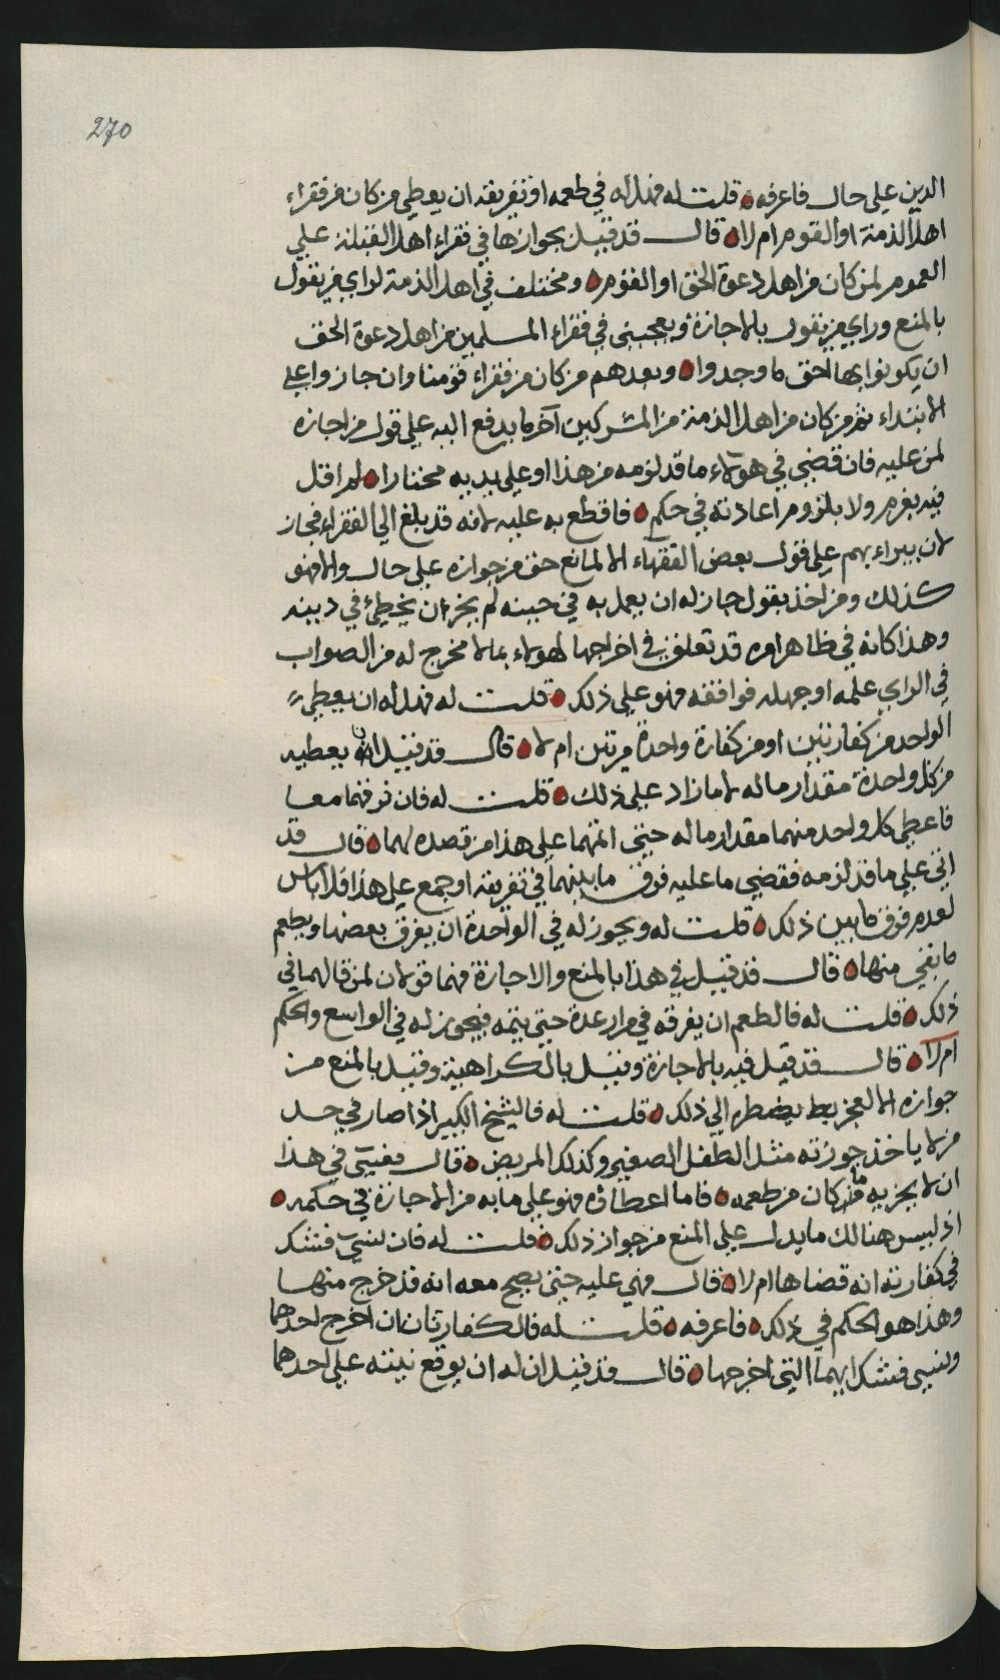 270
الدين علي حال فاعرفه قلت له فهل له في طعمه او تفريقه ان يعطي من كان من فقراء
اهل الذمة او القوم ام لا قال قد قيل بجوازها في فقراء اهل القبلة علي
العموم لمن كان من اهل دعوة الحق او القوم ومختلف في اهل الذمة لراي من يقول
بالمنع وراي من يقول بالاجازة ويعجبني في فقراء المسلمين من اهل دعوة الحق
ان يكونوا بها احق ما وجدوا وبعدهم من كان من فقراء قومنا وان جاز واعلي
الابتداء ثم من كان من اهل الذمة من المشركين آخر ما يدفع اليه علي قول من اجازه
لمن عليه فان قضي في هولاء ما قد لزمه من هذا او علي يديه مختارا لم اقل
فيه بغرم ولا بلزوم اعادته في حكم فاقطع به عليه لانه قد بلغ الي الفقراء فجاز
لان يبراء بهم علي قول بعض الفقهاء الا لمانع حق من جوازه علي حال والا فهو
كذلك ومن اخذ بقول جاز له ان يعمل به في حينه لم يجز ان يخطئ في دينه
وهذا كانه في ظاهر امره قد تعلق في اخراجها لهولاء بما لا مخرج له من الصواب
في الراي علمه او جهله فوافقه فهو علي ذلك قلت له فهل له ان يعطي
الواحد من كفارتين او من كفارة واحدة مرتين ام لا قال قد قيل ان يعطيه
من كل واحدة مقدار ما له لا ما زاد علي ذلك قلت له فان فرقهما معا
فاعطي كل واحد منهما مقدار ما له حتي اتمهما علي هذا من قصده لهما قال قد
اتي علي ما قد لزمه فقضي ما عليه فرق ما بينهما في تفريقه او جمع علي هذا فلا باس
لعدم فرق ما بين ذلك قلت له ويجوز له في الواحدة ان يفرق بعضها ويطعم
ما بقي منها قال قد قيل في هذا بالمنع والاجازة فهما قولان لمن قالهما في
ذلك قلت له فالطعم ان يفرقه في مرار عدة حتي يتمه فيجوز له في الواسع والحكم
ام لا قال قد قيل فيه بالاجازة وقيل بالكراهية وقيل بالمنع من
جوازه الا لعجز يضطره الي ذلك قلت له فالشيخ الكبير اذا صار في حد
من لا ياخذ جوزته مثل الطفل الصغير وكذلك المريض قال فعسي في هذا
ان لا يجزيه ما كان من طعمه فاما اعطاؤه فهو علي ما به من الاجازة في حكمه
اذ ليس هنالك ما يدل علي المنع من جواز ذلك قلت له فان نسي فشك
في كفارته انه قضاها ام لا قال فهي عليه حتي يصح معه انه قد خرج منها
وهذا هو الحكم في ذلك فاعرفه قلت له فالكفارتان ان اخرج احدهما
ونسي فشك ايهما التي اخرجها قال قد قيل ان له ان يوقع نيته علي احدهما